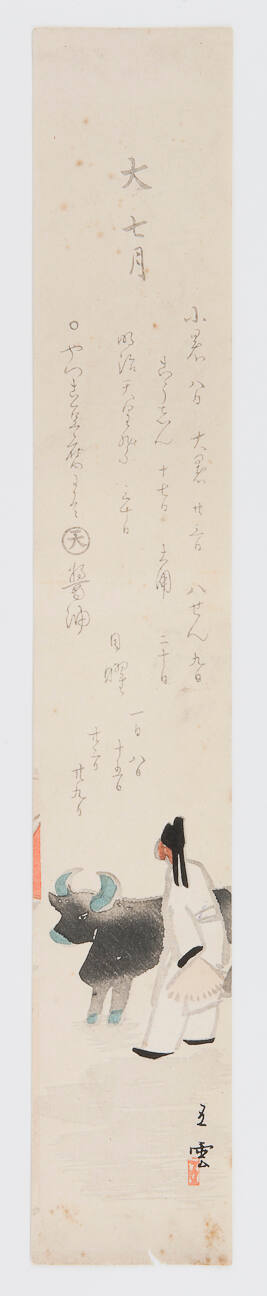 大
七月
小暑 八日 大暑 廿三日 八せん 九日
こうしん 十七日 土用 二十日
明治天皇祭 三十日
日曜
一日 八日
十五日
廿二日
廿九日
天 醤油
玉雲